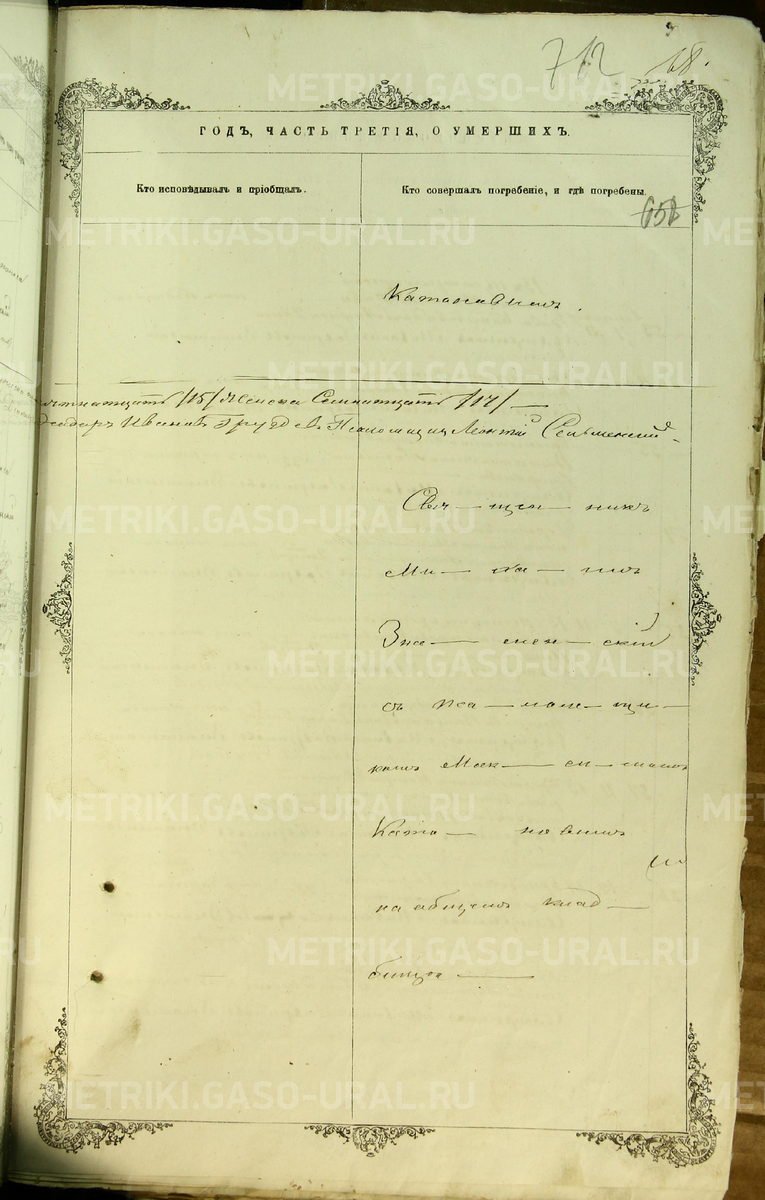 712 68.
ГОДЪ, ЧАСТЬ ТРЕТІЯ, О УМЕРШИХЪ.
Кто исповѣдывалъ и пріобщалъ.
Кто совершалъ погребеніе, и гдѣ погребены.
Катановымъ.
/15/ Женска Семнатцать /17/
Иванъ Груздевъ Псаломщикъ
Свя—щен—никъ
Ми—ха—илъ
Зна—мен—скій
съ Пса—ломи—щи—
комъ Мак—си—момъ
Ката—новымъ
на общемъ клад—
бищѣ
METRIKI.GASO-URAL.RU